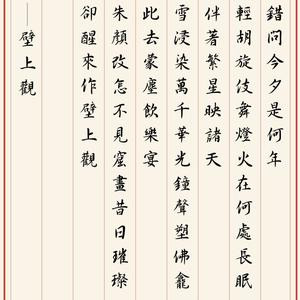 錯問今夕是何年
輕胡旋伎舞燈火在何處長眠
伴著繁星映諸天
雪浸染萬千華光鐘聲塑佛龕
此去蒙塵飲樂宴
朱顏改怎不見窟畫昔日璀璨
卻醒來作壁上觀
——壁上觀